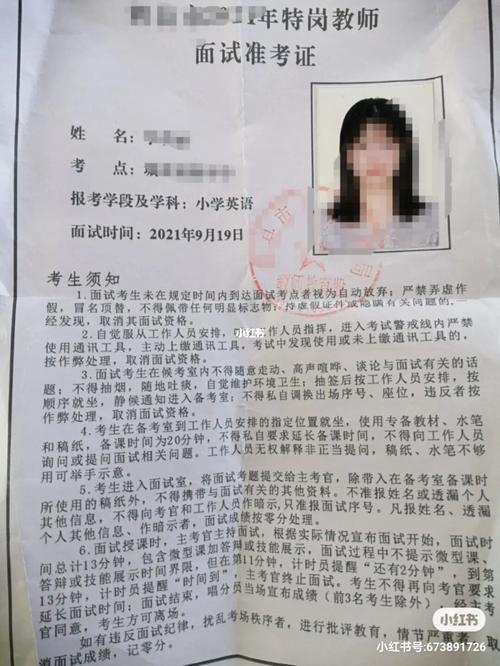 年特岗教师
面试准考证
姓 名:
考 点:
报考学段及学科: 小学英语
面试时间: 2021年9月19日
考生须知
1.面试考生未在规定时间内到达面试考点者视为自动放弃; 严禁弄虚作
假, 冒名顶替, 不得佩带任何明显标志物; 持虚假证件或隐瞒有关问题的, 一
经发现, 取消其面试资格。
2.自觉服从工作人员安排, 工作人员指挥, 进入考试警戒线内严禁
使用通讯工具, 主动上缴通讯工具, 考试中发现使用或未上缴通讯工具的,
按作弊处理, 取消面试资格。
3.面试考生在候考室内不得随意走动、高声喧哗、谈论与面试有关的话
题; 不得抽烟, 随地吐痰, 自觉维护环境卫生; 抽签后按工作人员安排, 按
顺序就坐, 静候通知进入备考室; 不得私自调换出场序号、座位, 违反者按
作弊处理, 取消面试资格。
4.考生在备考室到工作人员安排的指定位置就坐, 使用专备教材、水笔
和稿纸, 备课时间为20分钟, 不得私自要求延长备课时间, 不得向工作人员
询问或提问面试相关问题。工作人员无权解释非正当提问, 稿纸、水笔不够
用可举手示意。
5.考生进入面试室, 将面试考题提交给主考官, 除带入在备考室备课时
所使用的稿纸外, 不得携带与面试有关的其他资料。不准报姓名或透漏个
人其他信息, 不得向考官和工作人员作暗示, 只准报面试序号。凡报姓名、透漏
个人其他信息、作暗示者, 面试成绩按零分处理。
6.面试授课时, 主考官主持面试, 根据实际情况宣布面试开始, 面试时
间总计13分钟, 包含微型课加答辩或技能展示, 面试过程中不提示微型课、
答辩或技能展示时间界限, 但在第11分钟, 计时员提醒“还有2分钟”, 到第
13分钟, 计时员提醒“时间到”, 主考官终止面试。考生不得再向考官要求
延长面试时间; 面试结束, 唱分员当场宣布成绩(前3名考生除外), 经主考
官同意, 考生方可离场。
如有违反面试纪律, 扰乱考场秩序者, 进行批评教育, 情节严重者, 取
消面试成绩, 记零分。
小红书
小红书
小红书号:673891726